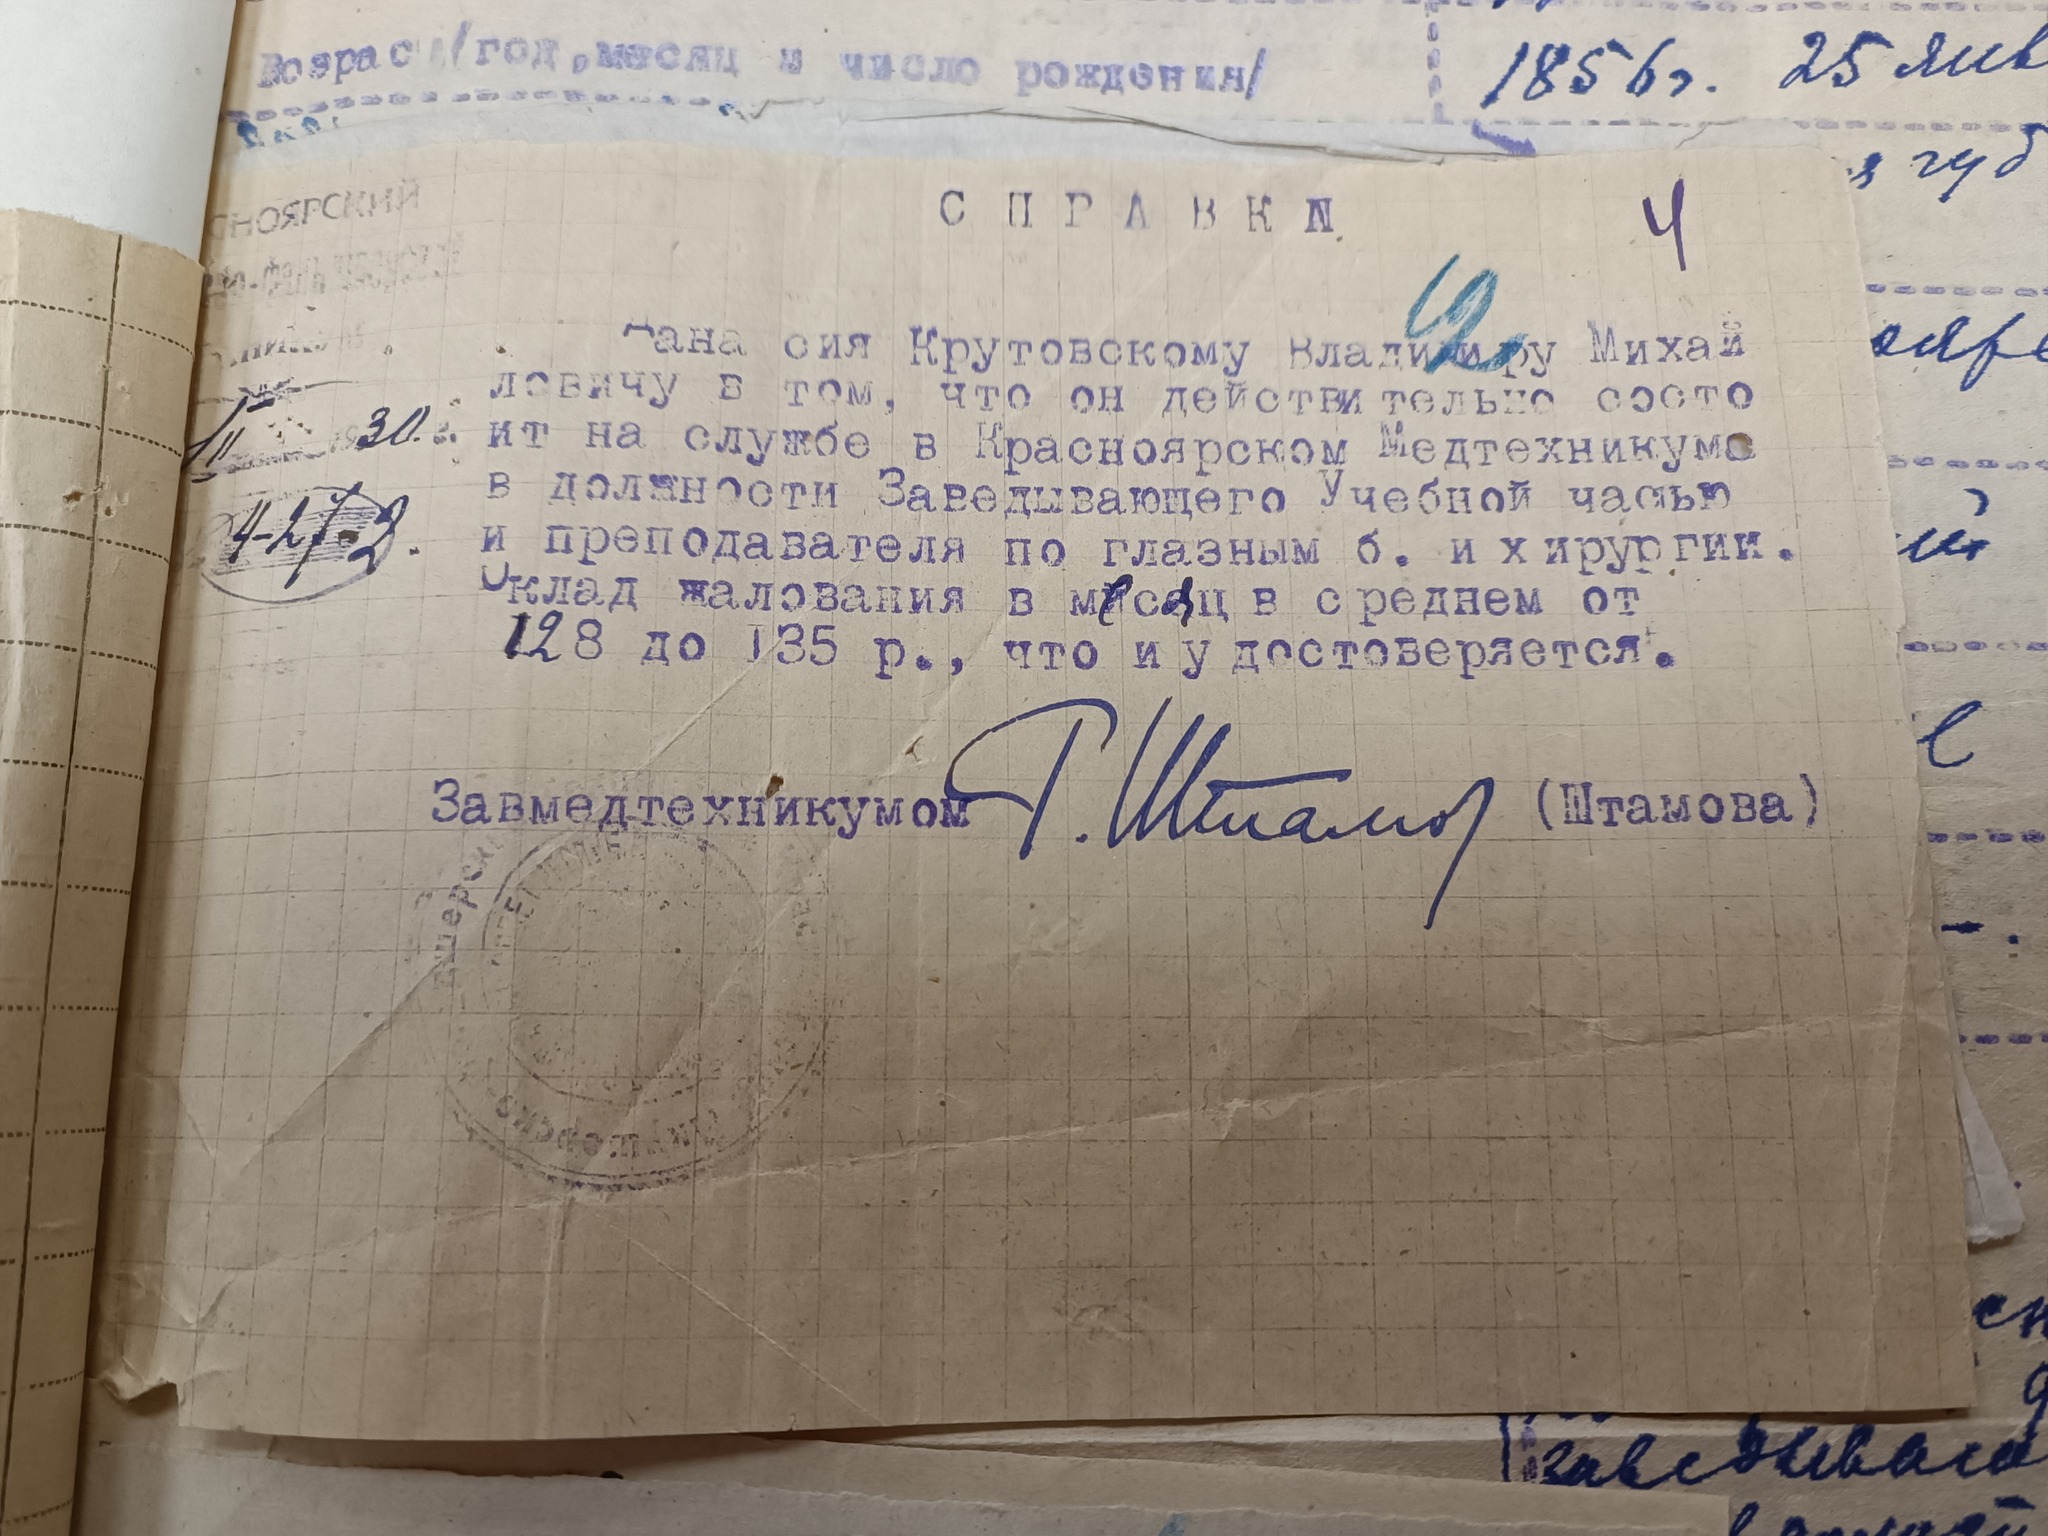 Возраст /год, месяц и число рождения/
1856г. 25 янв
губ
СНОЯРСКИЙ
СПРАВКА
4
Дана сия Крутовскому Владимиру Михай
ловичу в том, что он действительно состо
ит на службе в Красноярском Медтехникуме
30.
в должности Заведывающего Учебной частью
4-27
и преподавателя по глазным б. и хирургии.
Оклад жалования в месяц в среднем от
128 до 135 р., что и удостоверяется.
Завмедтехникумом Г. Штамов (Штамова)
заведываю